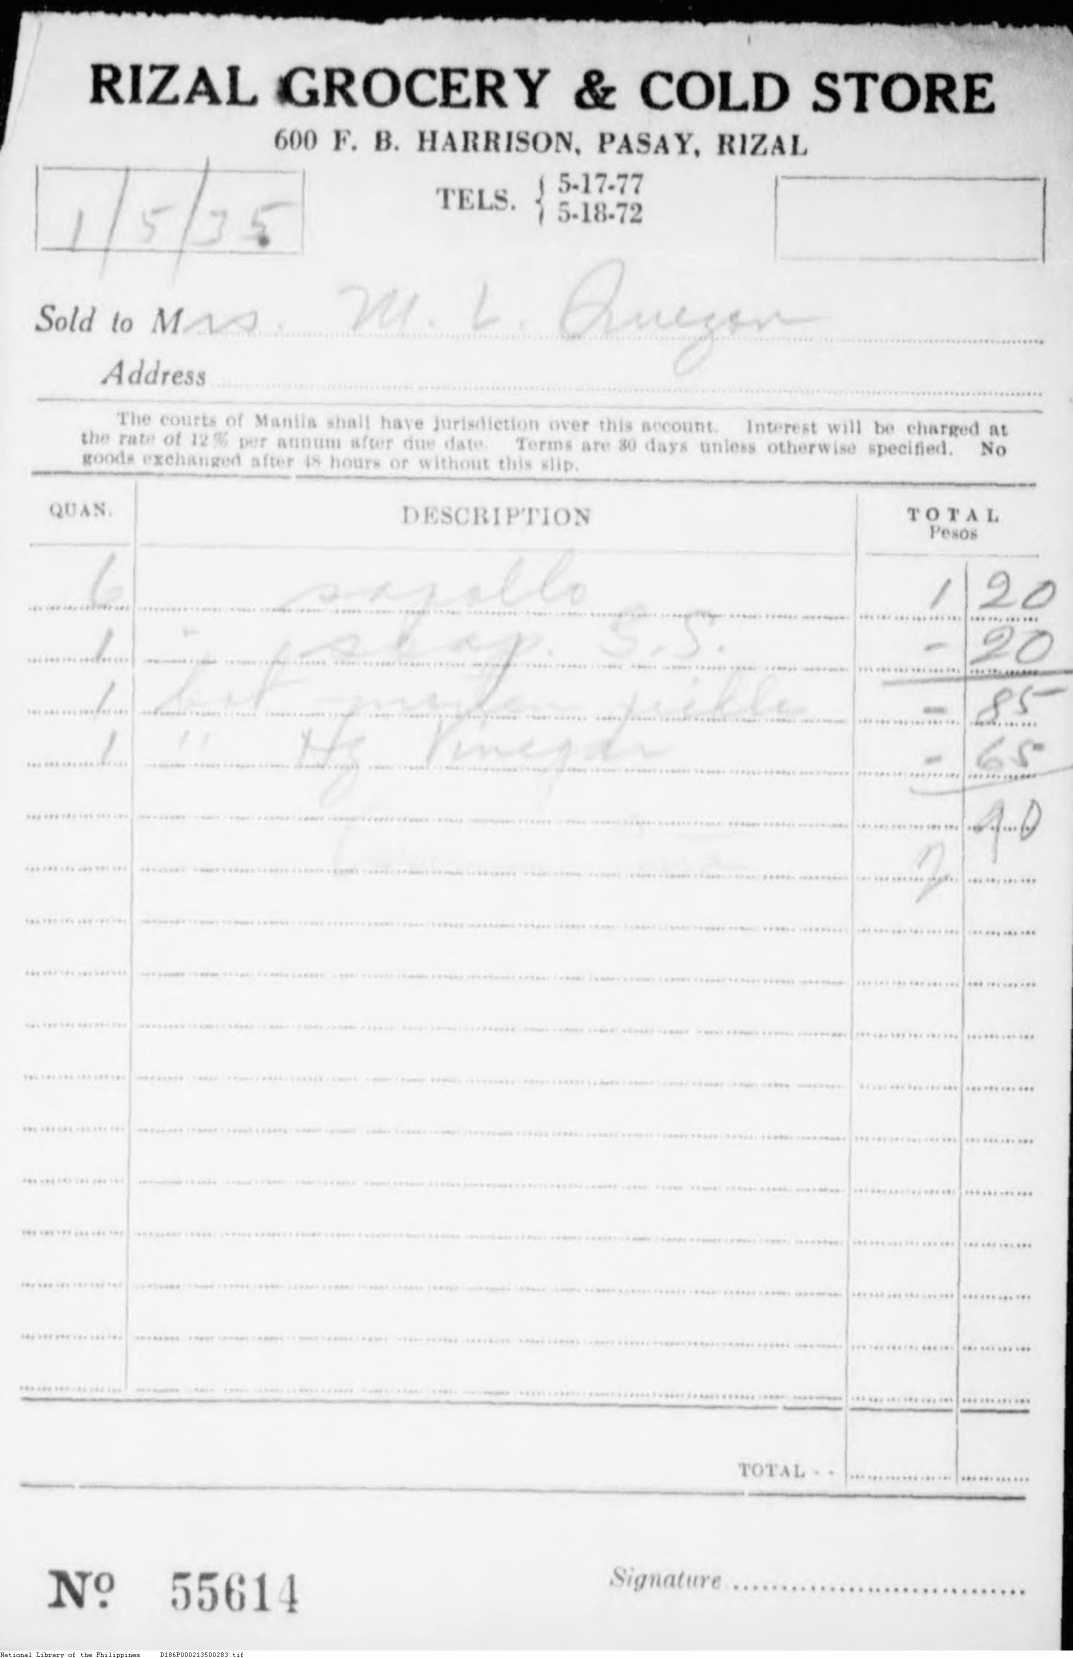 RIZAL GROCERY & COLD STORE
600 F. B. HARRISON, PASAY, RIZAL
TELS. { 5-17-77
5-18-72
1/5/35
Sold to Mrs. M. L. Quezon
Address
The courts of Manila shall have jurisdiction over this account. Interest will be charged at
the rate of 12% per annum after due date. Terms are 30 days unless otherwise specified. No
goods exchanged after 48 hours or without this slip.
QUAN. DESCRIPTION TOTAL
Pesos
6 sapollo 1 20
1 " S.S. - 20
1 bot pickle - 85
1 " Hz Vinegar - 65
2 90
TOTAL - -
Nº 55614
Signature
National Library of the Philippines D186P000213500283.tif